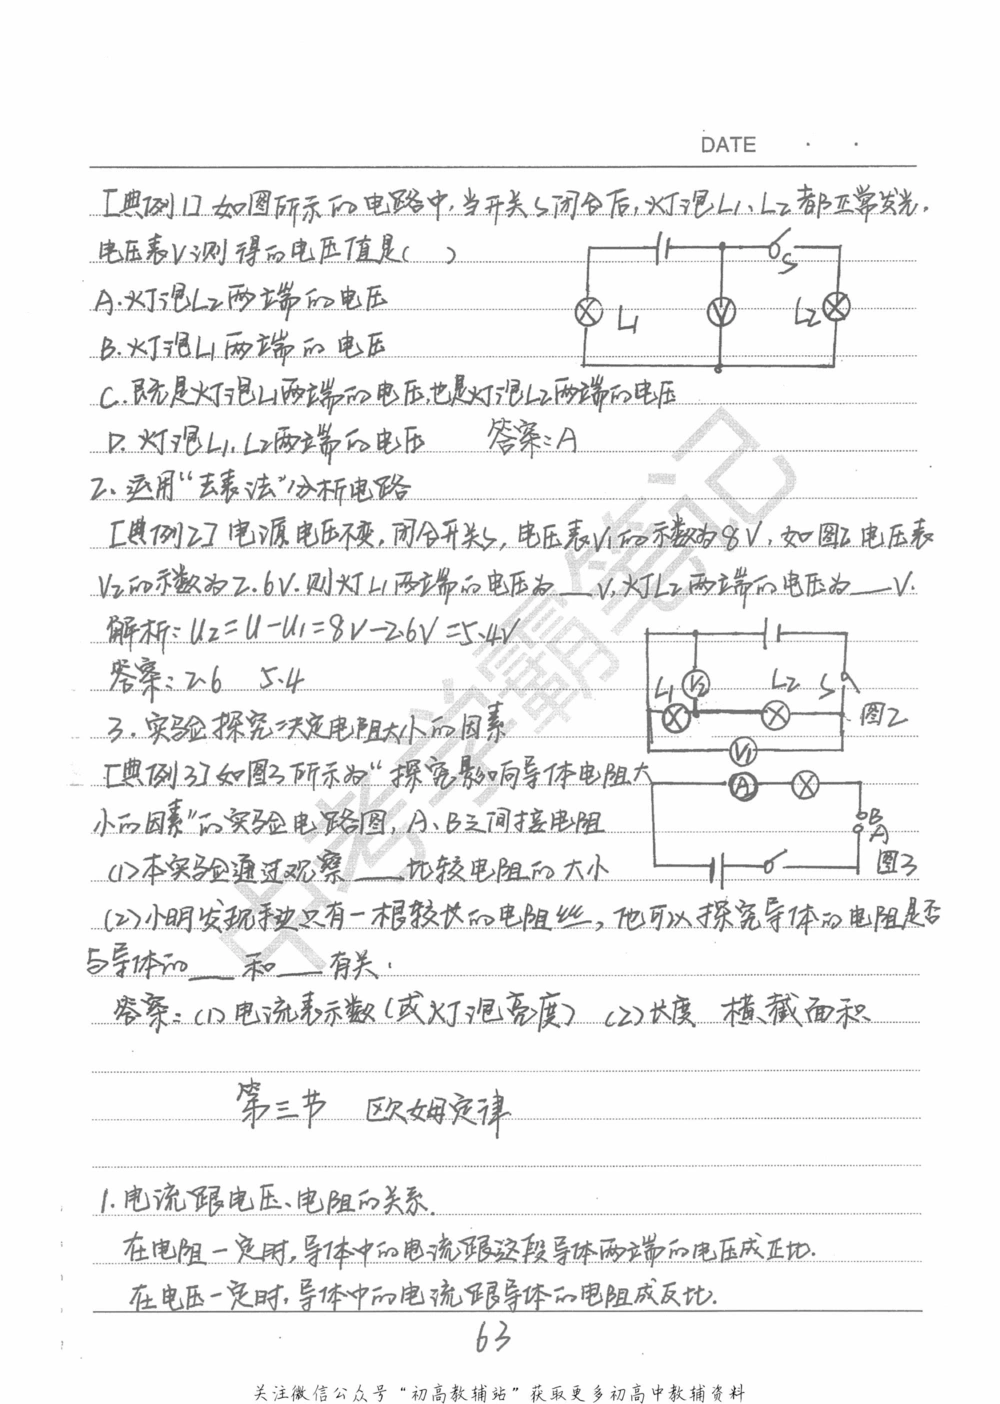 DATE · ·
[典例1] 如图所示的电路中,当开关S闭合后,灯泡L1、L2都正常发光,
电压表V测得的电压值是( )
A.灯泡L2两端的电压
B.灯泡L1两端的电压
C.既是灯泡L1两端的电压,也是灯泡L2两端的电压
D.灯泡L1、L2两端的电压 答案:A
S
L1 V L2
2、运用“去表法”分析电路
[典例2] 电源电压不变,闭合开关S,电压表V1的示数为8V,如图2电压表
V2的示数为2.6V.则灯L1两端的电压为___V,灯L2两端的电压为___V.
解析:U2=U-U1=8V-2.6V=5.4V
答案:2.6 5.4
L1 V2 L2 S
图2
V1
3、实验探究:决定电阻大小的因素
[典例3] 如图3所示为“探究影响导体电阻大
小的因素”的实验电路图,A、B之间接电阻
A
B
A
图3
(1)本实验通过观察___比较电阻的大小
(2)小明发现手边只有一根较长的电阻丝,他可以探究导体的电阻是否
与导体的___和___有关.
答案:(1)电流表示数(或灯泡亮度) (2)长度 横截面积
第三节 欧姆定律
1.电流跟电压、电阻的关系.
在电阻一定时,导体中的电流跟这段导体两端的电压成正比.
在电压一定时,导体中的电流跟导体的电阻成反比.
63
关注微信公众号“初高教辅站”获取更多初高中教辅资料
中考学霸笔记